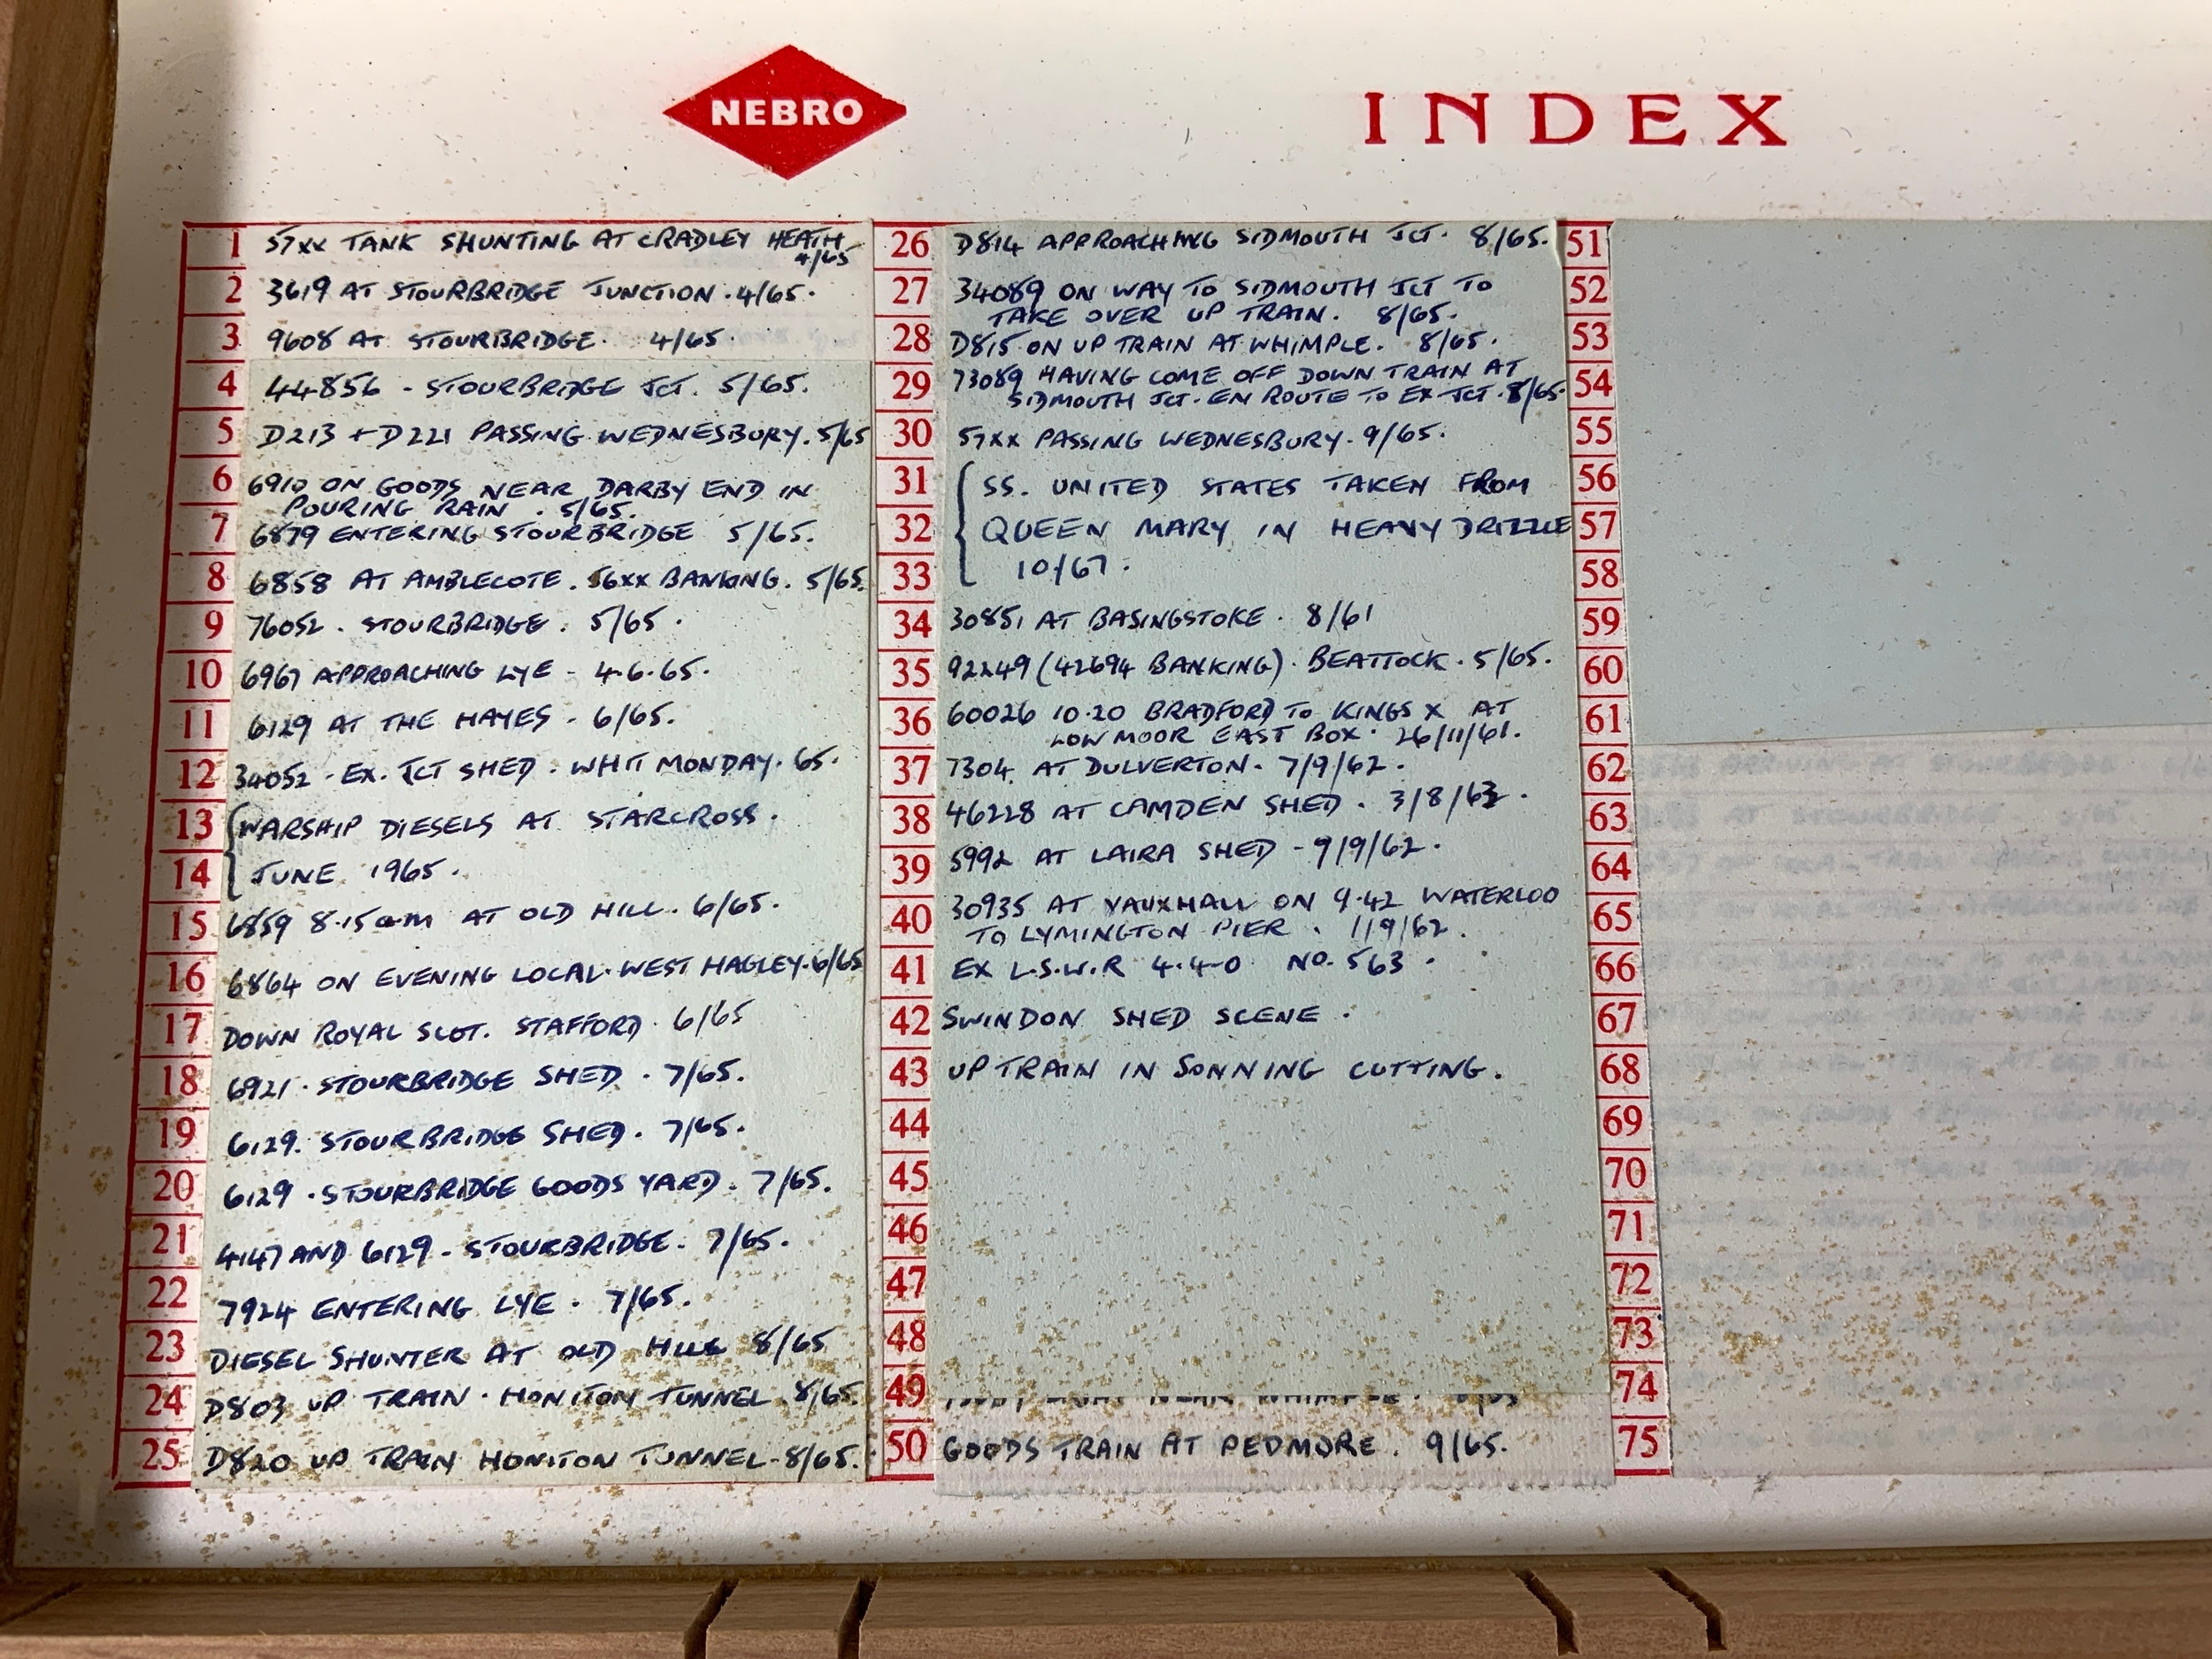 NEBRO
INDEX
1 57XX TANK SHUNTING AT CRADLEY HEATH
4/65
2 3619 AT STOURBRIDGE JUNCTION. 4/65.
3 9608 AT STOURBRIDGE. 4/65.
4 44856 - STOURBRIDGE JCT. 5/65.
5 D213 + D221 PASSING WEDNESBURY. 5/65
6 6910 ON GOODS NEAR DARBY END IN
POURING RAIN. 5/65.
7 6879 ENTERING STOURBRIDGE 5/65.
8 6858 AT AMBLECOTE. 56XX BANKING. 5/65.
9 76052. STOURBRIDGE. 5/65.
10 6967 APPROACHING LYE - 4.6.65.
11 6129 AT THE HAYES - 6/65.
12 34052 - EX. JCT SHED. WHIT MONDAY. 65.
13 WARSHIP DIESELS AT STARCROSS.
14 JUNE 1965.
15 6859 8.15am AT OLD HILL. 6/65.
16 6864 ON EVENING LOCAL. WEST HAGLEY. 6/65
17 DOWN ROYAL SCOT. STAFFORD. 6/65
18 6921. STOURBRIDGE SHED. 7/65.
19 6129. STOURBRIDGE SHED. 7/65.
20 6129. STOURBRIDGE GOODS YARD. 7/65.
21 4147 AND 6129 - STOURBRIDGE. 7/65.
22 7924 ENTERING LYE. 7/65.
23 DIESEL SHUNTER AT OLD HILL 8/65
24 D803 UP TRAIN. HONITON TUNNEL. 8/65.
25 D820 UP TRAIN HONITON TUNNEL. 8/65.
26 D814 APPROACHING SIDMOUTH JCT. 8/65.
27 34089 ON WAY TO SIDMOUTH JCT TO
TAKE OVER UP TRAIN. 8/65.
28 D815 ON UP TRAIN AT WHIMPLE. 8/65.
29 73089 HAVING COME OFF DOWN TRAIN AT
SIDMOUTH JCT. EN ROUTE TO EX JCT. 8/65.
30 57XX PASSING WEDNESBURY. 9/65.
31 SS. UNITED STATES TAKEN FROM
32 QUEEN MARY IN HEAVY DRIZZLE
33 10/67.
34 30851 AT BASINGSTOKE. 8/61
35 92249 (42694 BANKING). BEATTOCK. 5/65.
36 60026 10.20 BRADFORD TO KINGS X AT
LOW MOOR EAST BOX. 26/11/61.
37 7304 AT DULVERTON. 7/9/62.
38 46228 AT CAMDEN SHED. 3/8/63.
39 5992 AT LAIRA SHED - 9/9/62.
40 30935 AT VAUXHALL ON 9.42 WATERLOO
TO LYMINGTON PIER. 1/9/62.
41 EX L.S.W.R 4.4-0 NO. 563.
42 SWINDON SHED SCENE.
43 UP TRAIN IN SONNING CUTTING.
44
45
46
47
48
49
50 GOODS TRAIN AT PEDMORE. 9/65.
51
52
53
54
55
56
57
58
59
60
61
62
63
64
65
66
67
68
69
70
71
72
73
74
75